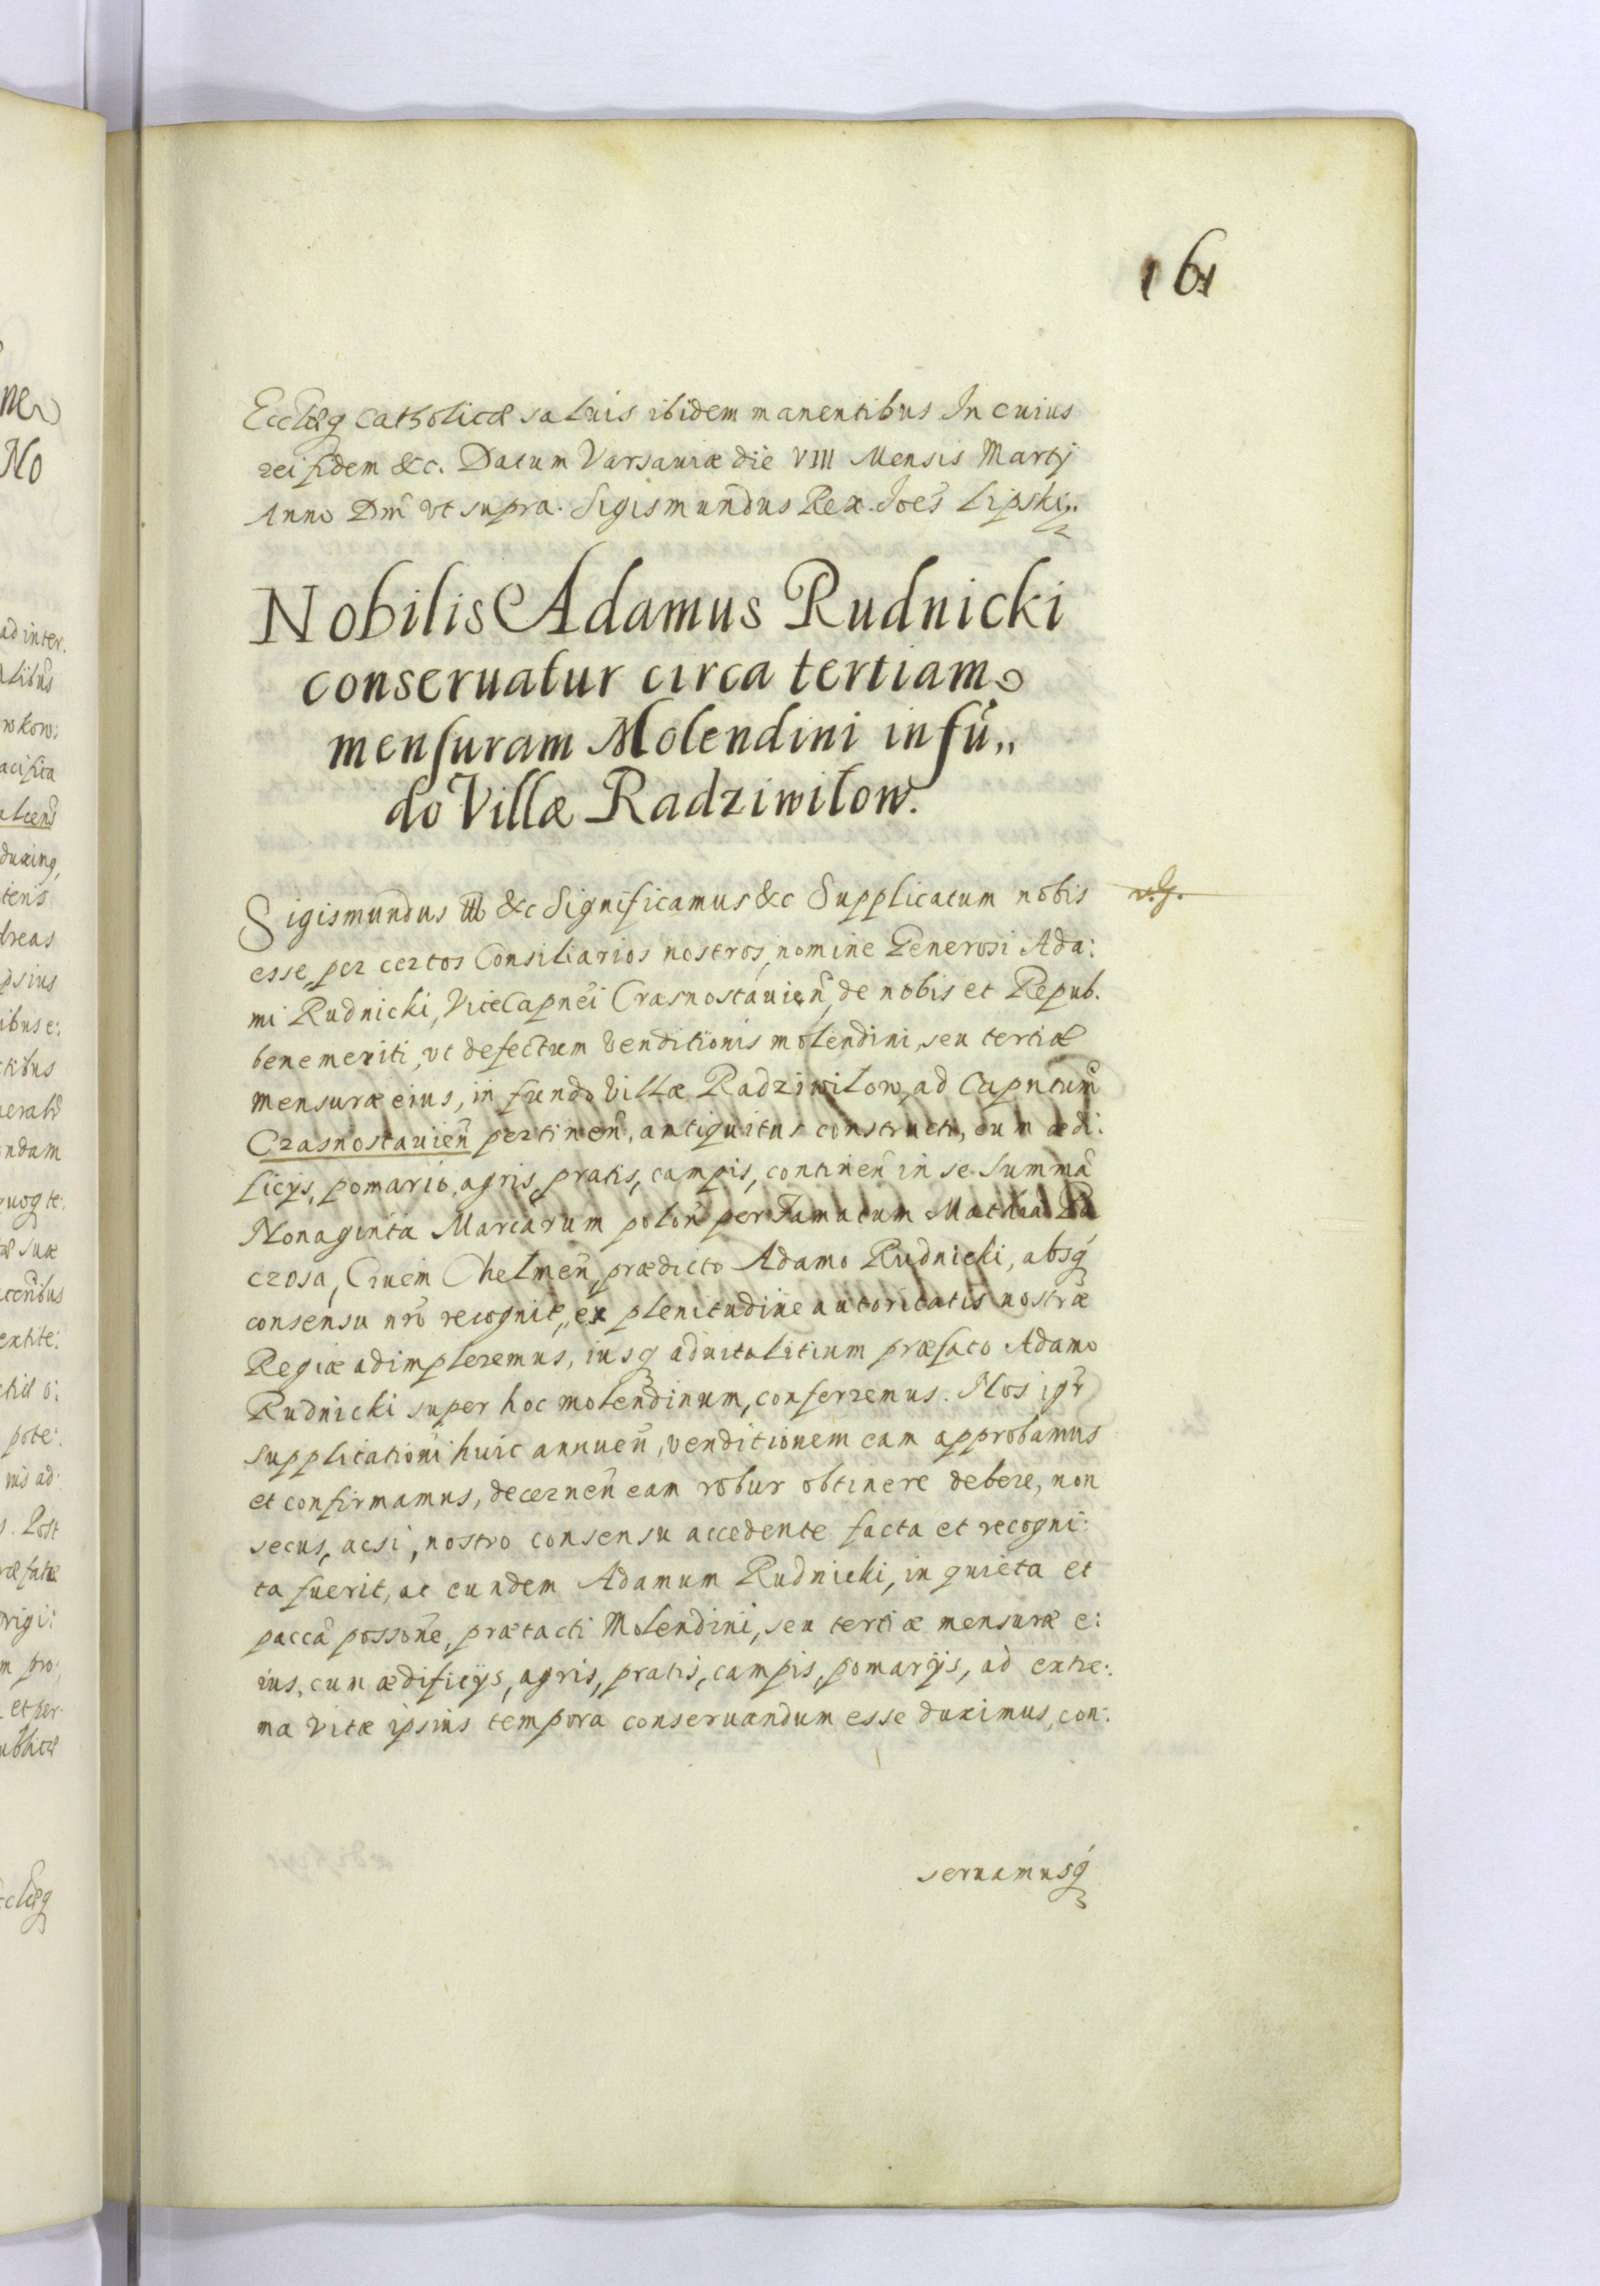 161
Eccliæq Catholicæ saluis ibidem manentibus In cuius
rei fidem &c. Datum Varsauiæ die VIII Mensis Martij
Anno Dnĩ vt supra. Sigismundus Rex. Joẽs Lipski„
Nobilis Adamus Rudnicki
conseruatur circa tertiam
mensuram Molendini in fũ„
do Villæ Radziwilow.
Sigismundus III &c Significamus &c Supplicatum nobis
esse, per certos Consiliarios nostros, nomine Generosi Ada:
mi Rudnicki, ViceCapnẽi Crasnostauieñ, de nobis et Repub.
benemeriti, vt defectum venditionis molendini, seu tertiæ
mensuræ eius, in fundo villæ Radziwilow, ad Capntum̃
Crasnostauieñ pertineñ, antiquitus constructi, cum ædi:
ficijs, pomario, agris, pratis, campis, contineñ in se summã
Nonaginta Marcarum poloñ per Famatum
crosa, Ciuem Chelmeñ, prædicto Adamo Rudnicki, absq
consensu nrõ recognit, ex plenitudine autoritatis nostræ
Regiæ adimpleremus, iusq aduitalitium præfato Adamo
Rudnicki super hoc molendinum, conferremus. Nos igr
supplicationi huic annueñ, venditionem eam approbamus
et confirmamus, decerneñ eam robur obtinere debere, non
secus, acsi, nostro consensu accedente facta et recogni:
ta fuerit, ac eundem Adamum Rudnicki, in quieta et
paccã possoñe, prætacti Molendini, seu tertiæ mensuræ e:
ius, cum ædificijs, agris, pratis, campis, pomarijs, ad extre:
ma vitæ ipsius tempora conseruandum esse duximus, con:
seruamusq